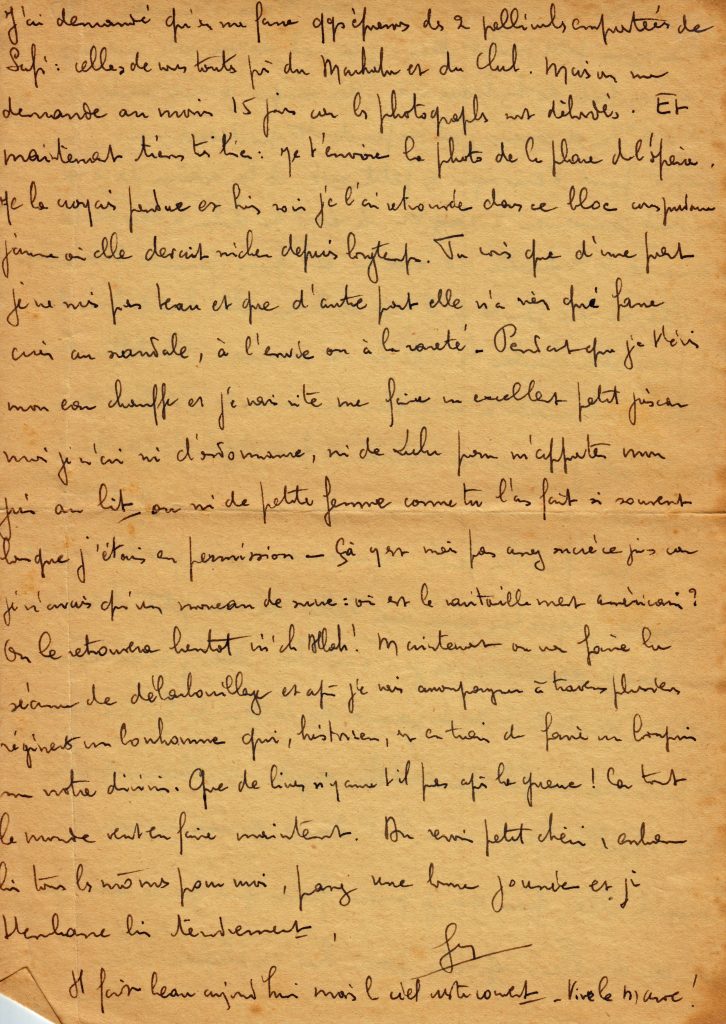 J'ai demandé qu'on me fasse qqs épreuves des 2 pellicules emportées de
Safi : celles de nous touts pris du Marhaba et du Club. Mais on me
demande au moins 15 jours car les photographes sont débordés. Et
maintenant tiens toi bien : je t'envoie la photo de la place de l'Opéra.
Je la croyais perdue et hier soir je l'ai retrouvée dans ce bloc correspondance
jaune où elle devait nicher depuis longtemps. Tu vois que d'une part
je ne suis pas beau et que d'autre part elle n'a rien qui fasse
crier au scandale, à l'envie ou à la rareté - Pendant que je t'écris
mon eau chauffe et je vais vite me faire un excellent petit jus car
moi je n'ai ni d'ordonnance, ni de Lulu pour m'apporter mon
jus au lit ou ni de petite femme comme tu l'as fait si souvent
lorsque j'étais en permission - Çà y est mais pas assez sucré ce jus car
je n'avais qu'un morceau de sucre : où est le ravitaillement américain ?
On le retrouvera bientot in'ch Allah ! Maintenant on va faire la
séance de débarbouillage et après je vais accompagner à travers plusieurs
régiments un bonhomme qui, historien, est en train de faire un bouquin
sur notre division. Que de livres n'y aura t'il pas après la guerre ! Car tout
le monde veut en faire maintenant. Au revoir petit chéri, embrasse
bien tous les mômes pour moi, passez une bonne journée et je
t'embrasse bien tendrement,
Guy
Il fait beau aujourd'hui mais le ciel reste couvert - Vive le Maroc !